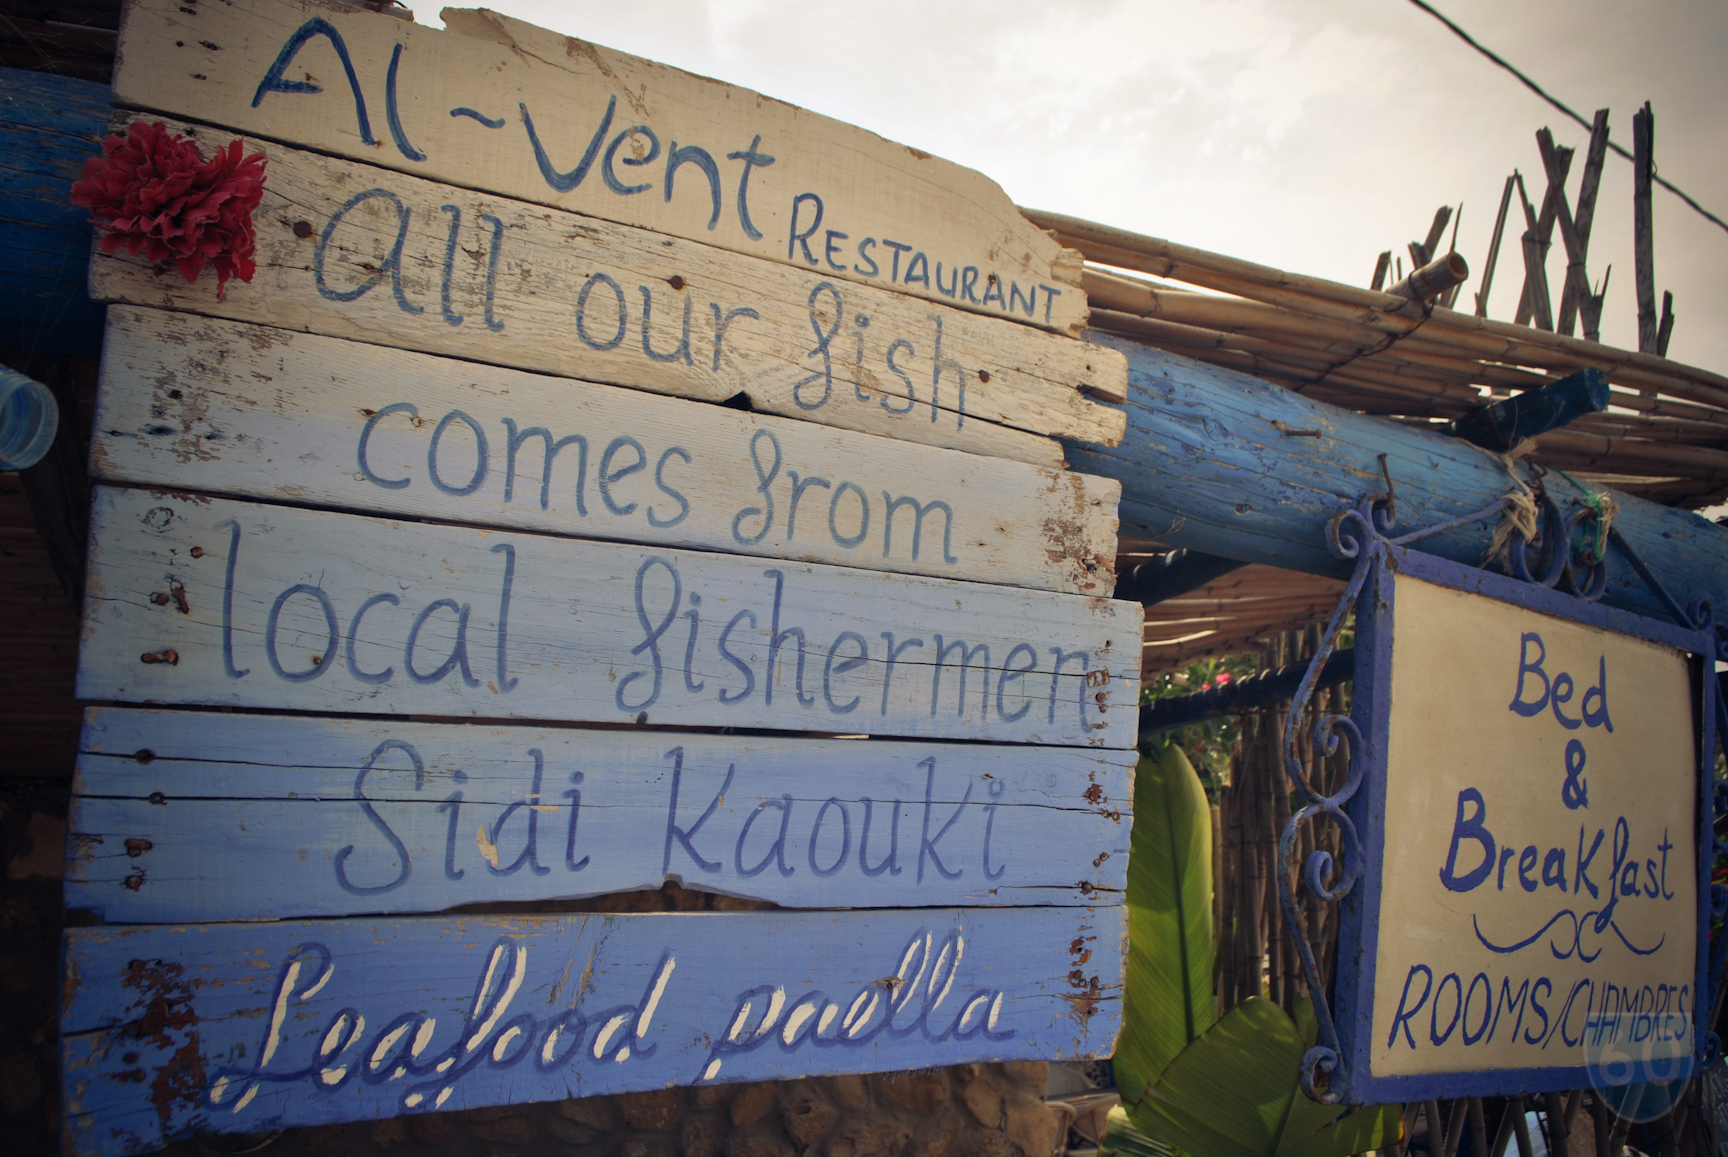 Al-Vent RESTAURANT
All our fish
comes from
local fishermen
Sidi Kaouki
Seafood paella
Bed
&
Breakfast
ROOMS/CHAMBRES
60